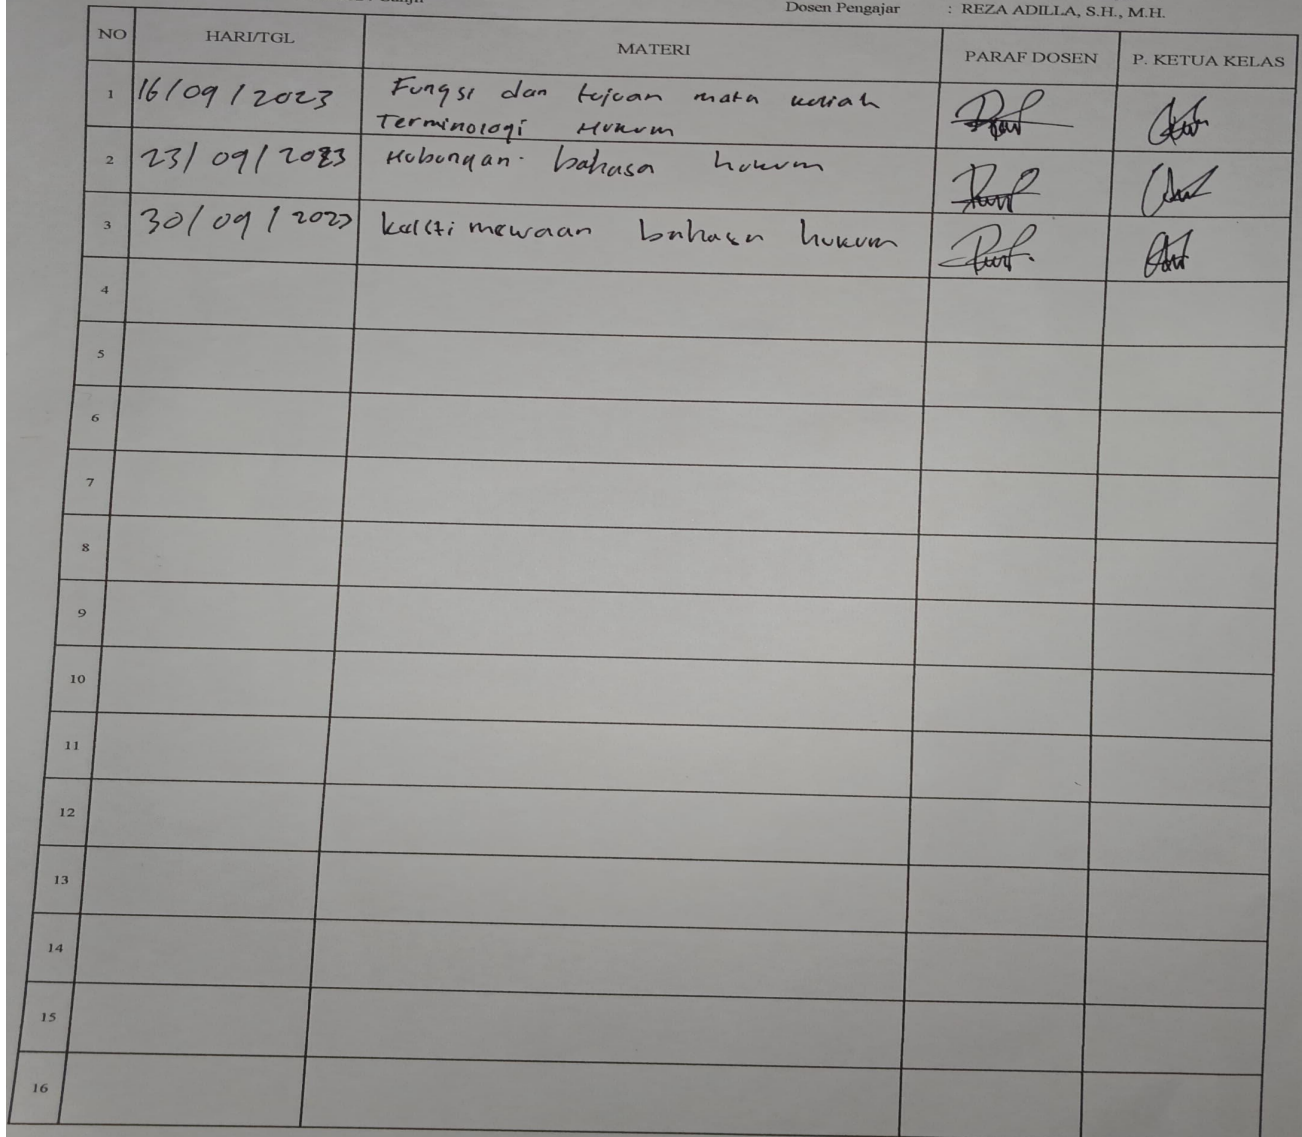 Dosen Pengajar : REZA ADILLA, S.H., M.H.
NO HARI/TGL MATERI PARAF DOSEN P. KETUA KELAS
1 16/09/2023 Fungsi dan tujuan mata kuliah
Terminologi Hukum
2 23/09/2023 Hubungan bahasa hukum
3 30/09/2023 keistimewaan bahasa hukum
4
5
6
7
8
9
10
11
12
13
14
15
16